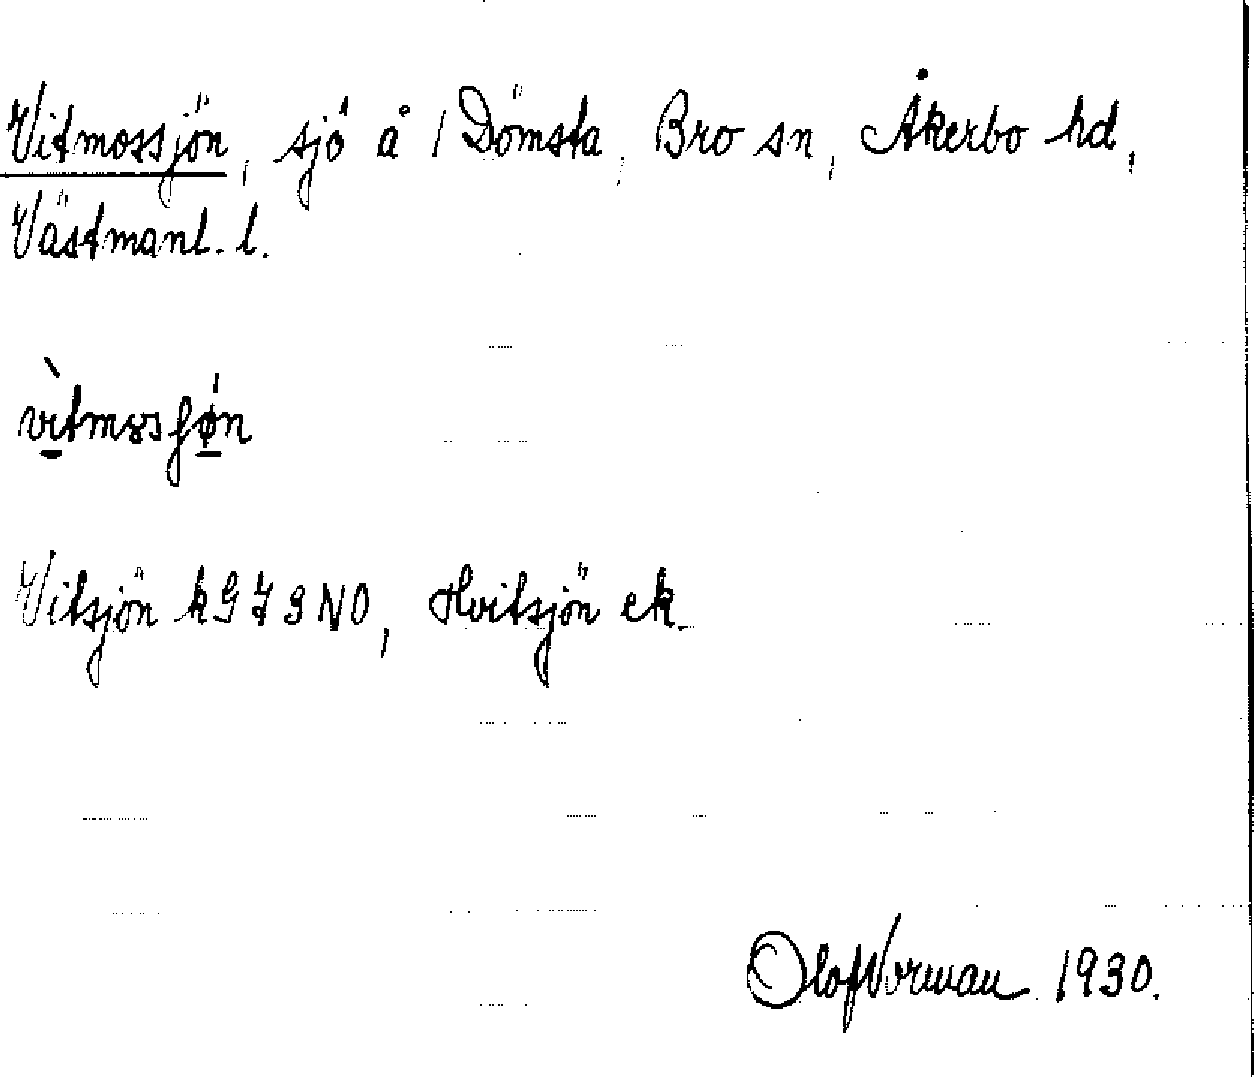 Vitmossjön, sjö å 1 Dömsta, Bro sn, Åkerbo hd,
Västmanl. l.
vìtmɷsʃǿn
Vitsjön kGI9NO, Hvitsjön ek.
Olof Norman 1930.